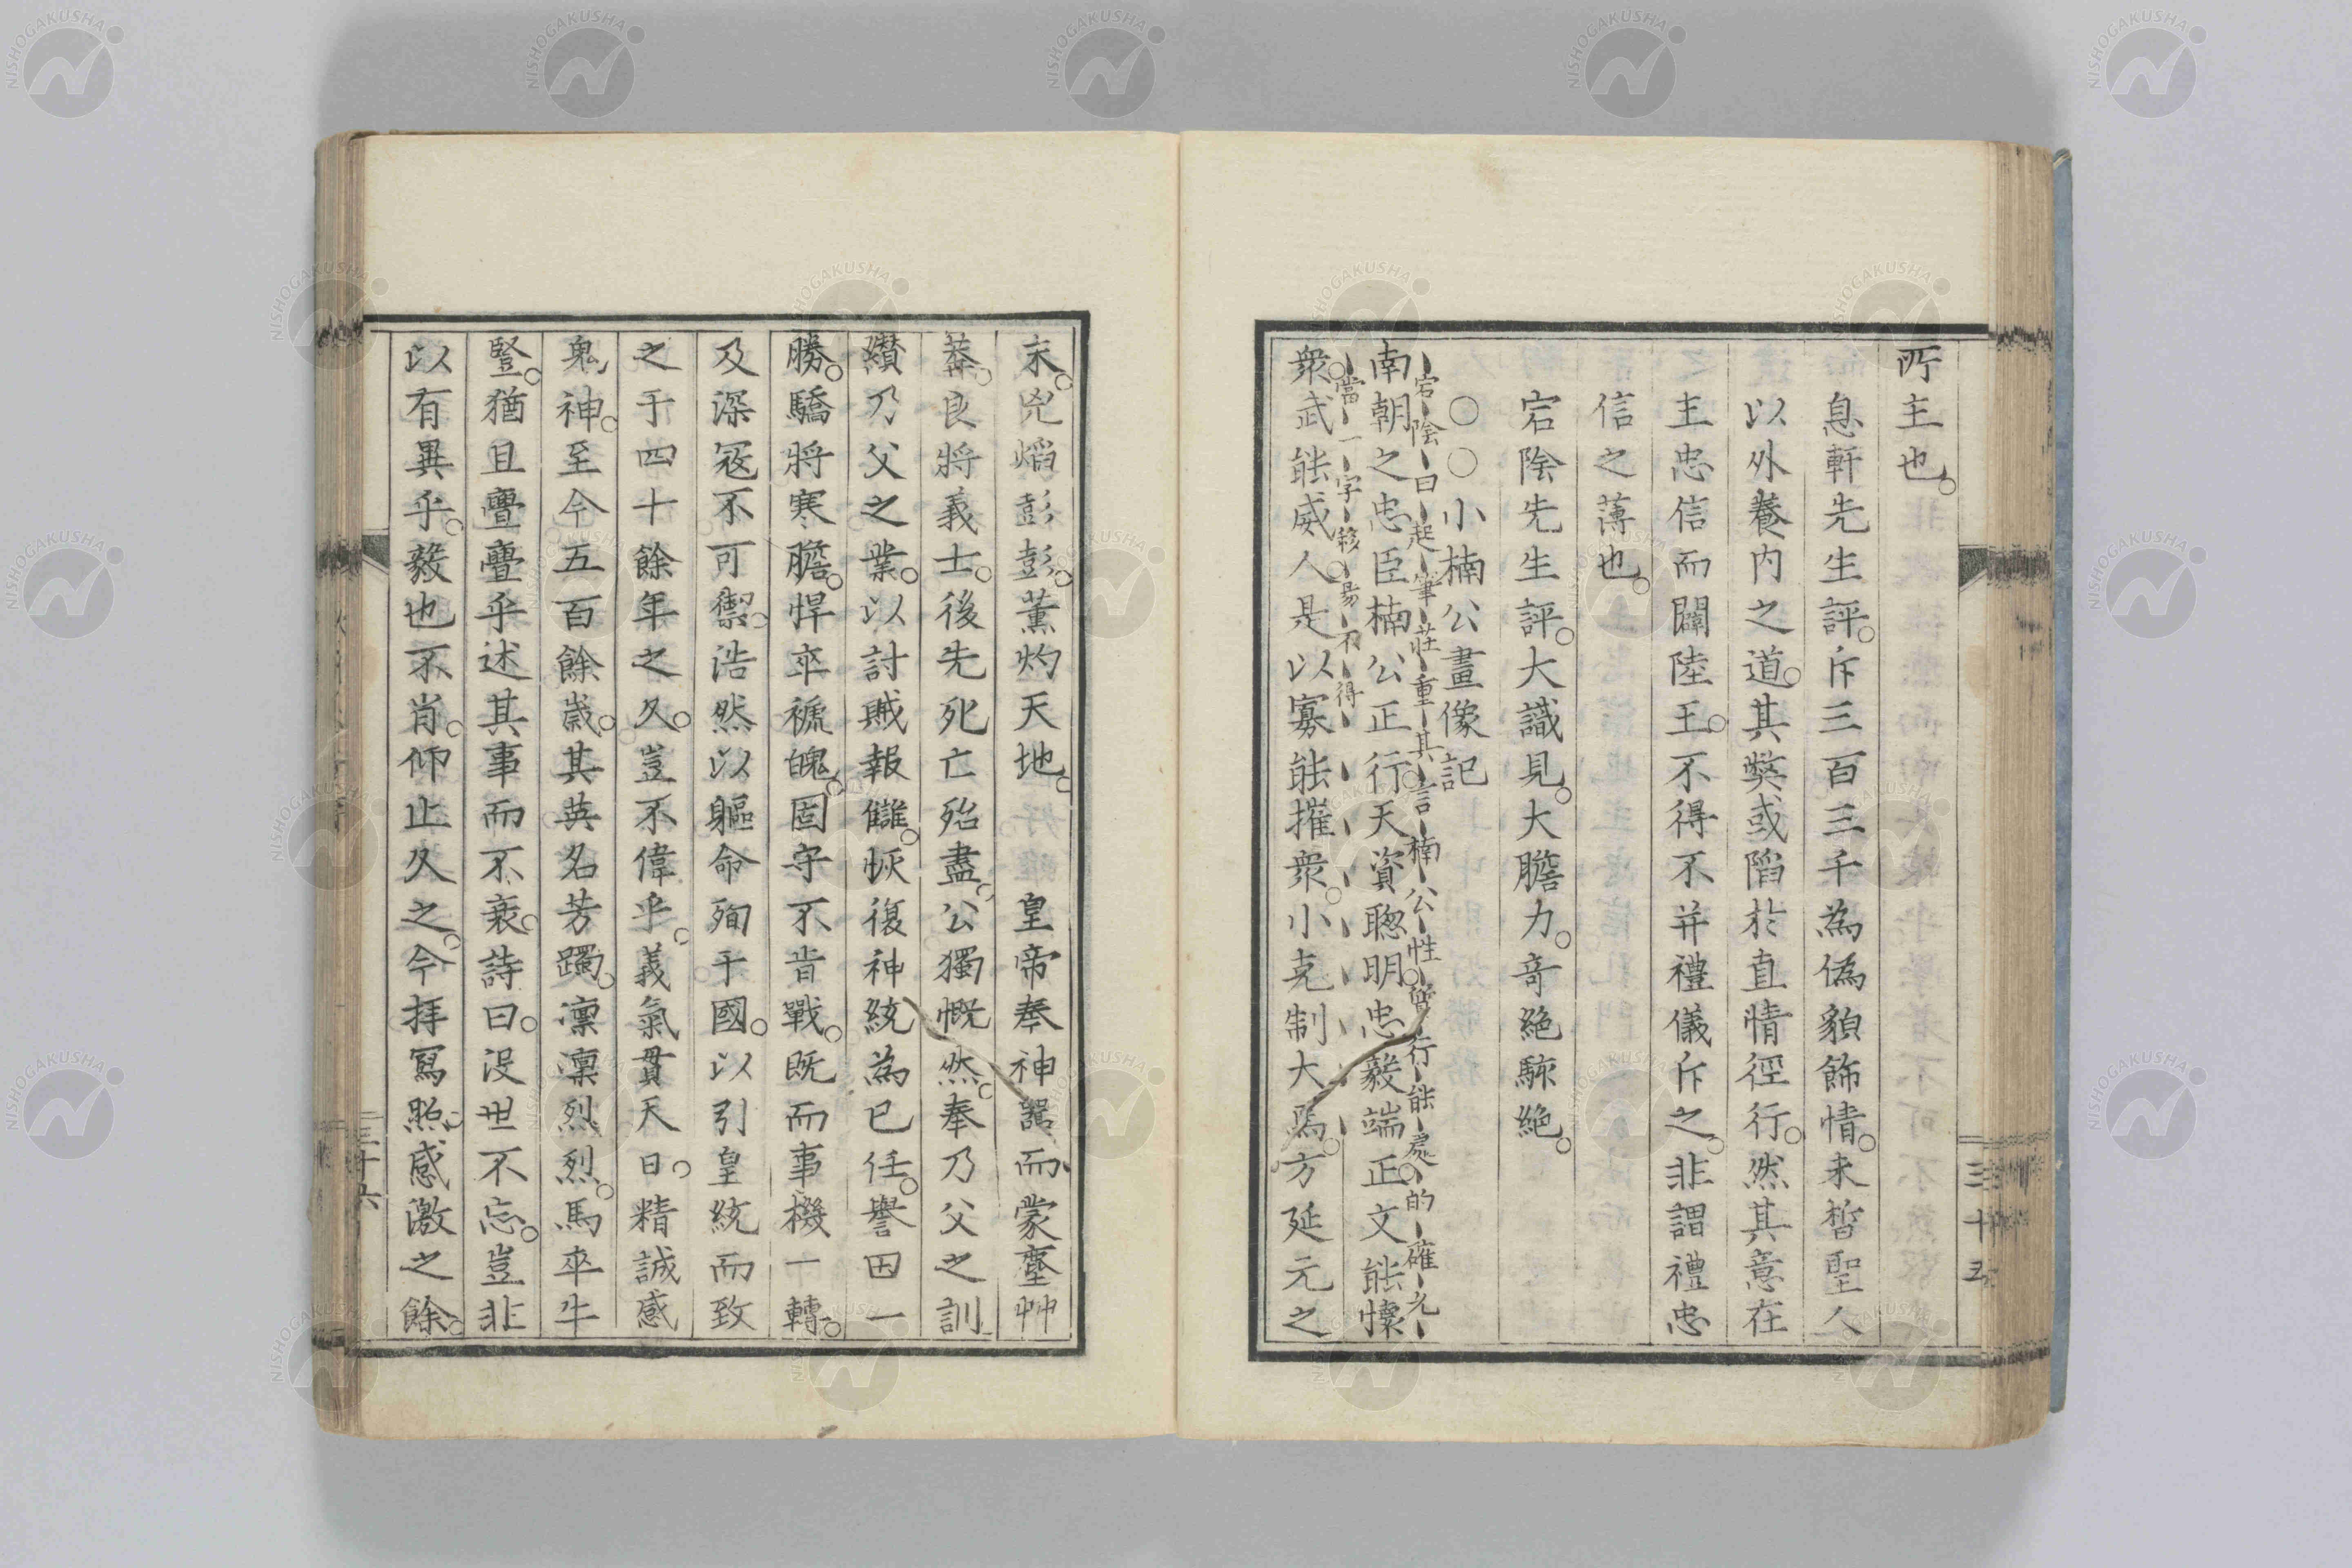 所主也
息軒先生評斥三百三千為偽貌飾情未晳聖人
以外養内之道其弊或陷於直情徑行然其意在
主忠信而闢陸王不得不并禮儀斥之非謂禮忠
信之薄也
宕陰先生評大識見大膽力奇絶駭絶
○○小楠公畫像記
宕陰曰起筆莊重其言楠公性質行能處的確允
南朝之忠臣楠公正行天資聰明忠毅端正文能懷
當一字移易不得
衆武能威人是以寡能摧衆小克制大焉方延元之
三十五
末兇焰彭彭薫灼天地皇帝奉神器而蒙塵艸
莽良將義士後先死亡殆盡公獨慨然奉乃父之訓
纘乃父之業以討賊報讎恢復神統為己任譽因一
勝驕將寒膽悍卒褫魄固守不肯戰既而事機一轉
及深冦不可禦浩然以軀命殉于國以引皇統而致
之于四十餘年之久豈不偉乎義氣貫天日精誠感
鬼神至今五百餘歳其英名芳躅凜凜烈烈馬卒牛
豎猶且亹亹乎述其事而不衰詩曰没世不忘豈非
以有異乎毅也不肖仰止久之今拜冩照感激之餘
三十六
NISHOGAKUSHA